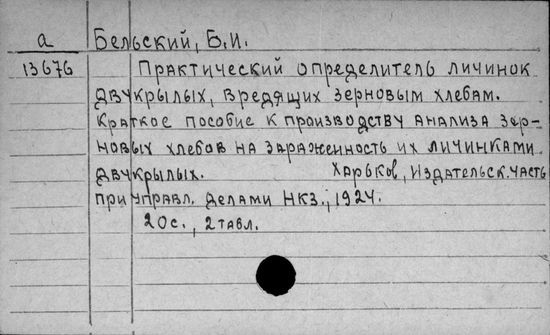 а Бельский, Б.И.
13676 Практический определитель личинок
двукрылых, вредящих зерновым хлебам.
Краткое пособие к производству анализа зер-
новых хлебов на зараженность их личинками
двукрылых. Харьков, Издательск. часть
при управл. делами НКЗ., 1924.
20с., 2 табл.